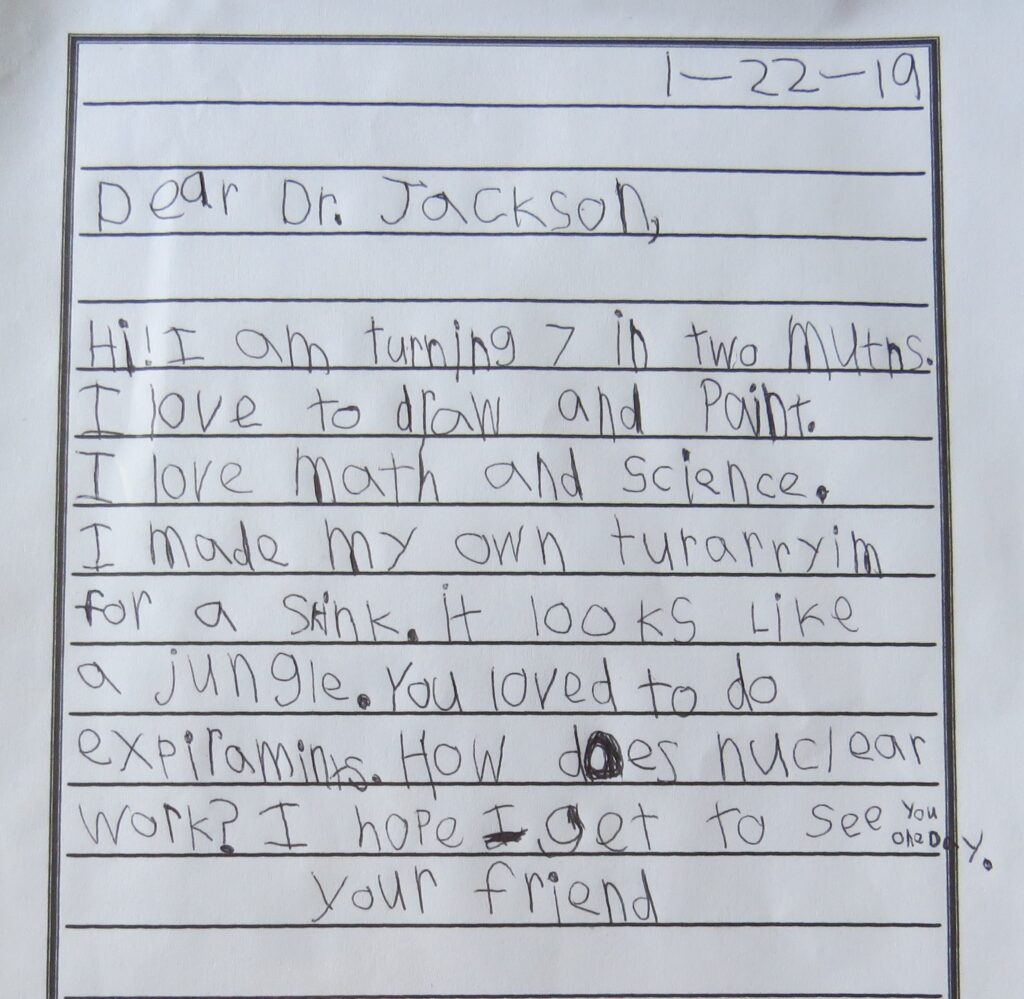 1-22-19
Dear Dr. Jackson,
Hi! I am turning 7 in two mutns.
I love to draw and Paint.
I love math and science.
I made my own turarryim
for a skink. it looks Like
a jungle. You loved to do
expiramints. How does nuclear
work? I hope I get to see you
one Day.
your friend